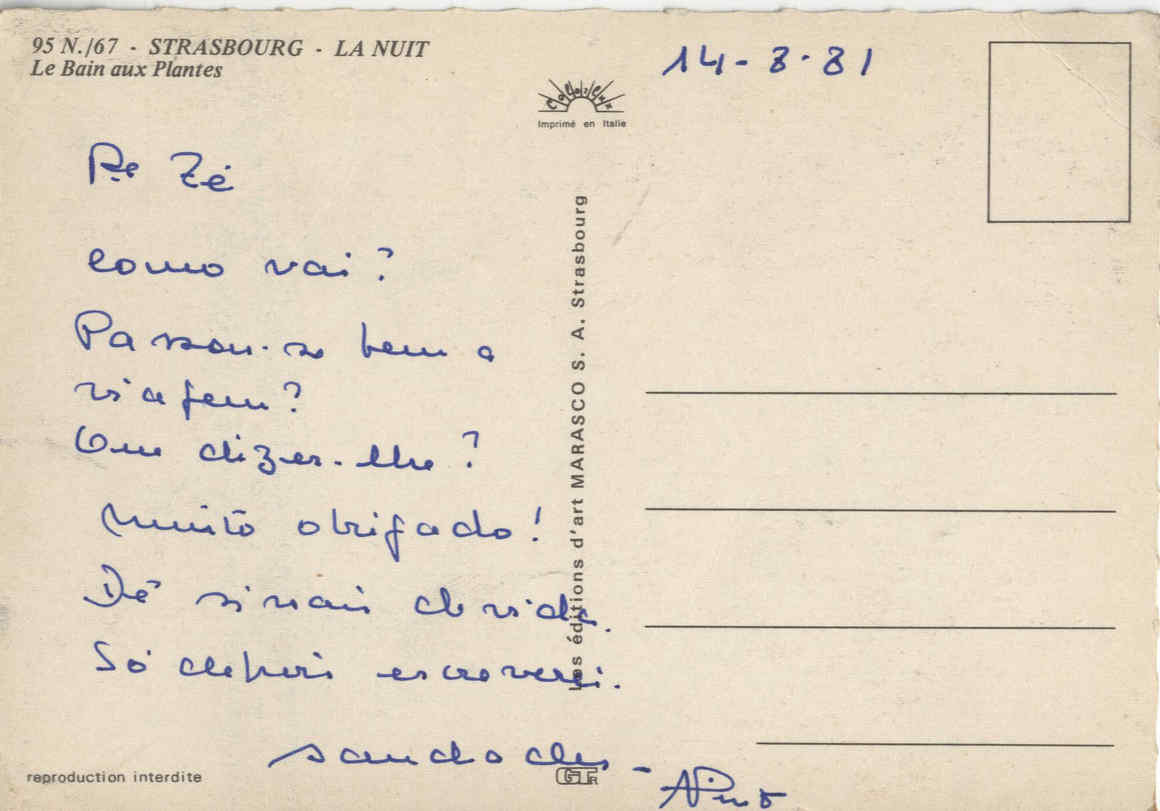 95 N./67 - STRASBOURG - LA NUIT
Le Bain aux Plantes
14-8-81
Colorlux
Imprimé en Italie
Pe Zé
Como vai?
Passou-se bem a
viagem?
Que dizer-lhe?
Muito obrigado!
Dê sinais de vida.
Só depois escreverei.
saudades -
APinto
Les éditions d'art MARASCO S. A. Strasbourg
reproduction interdite